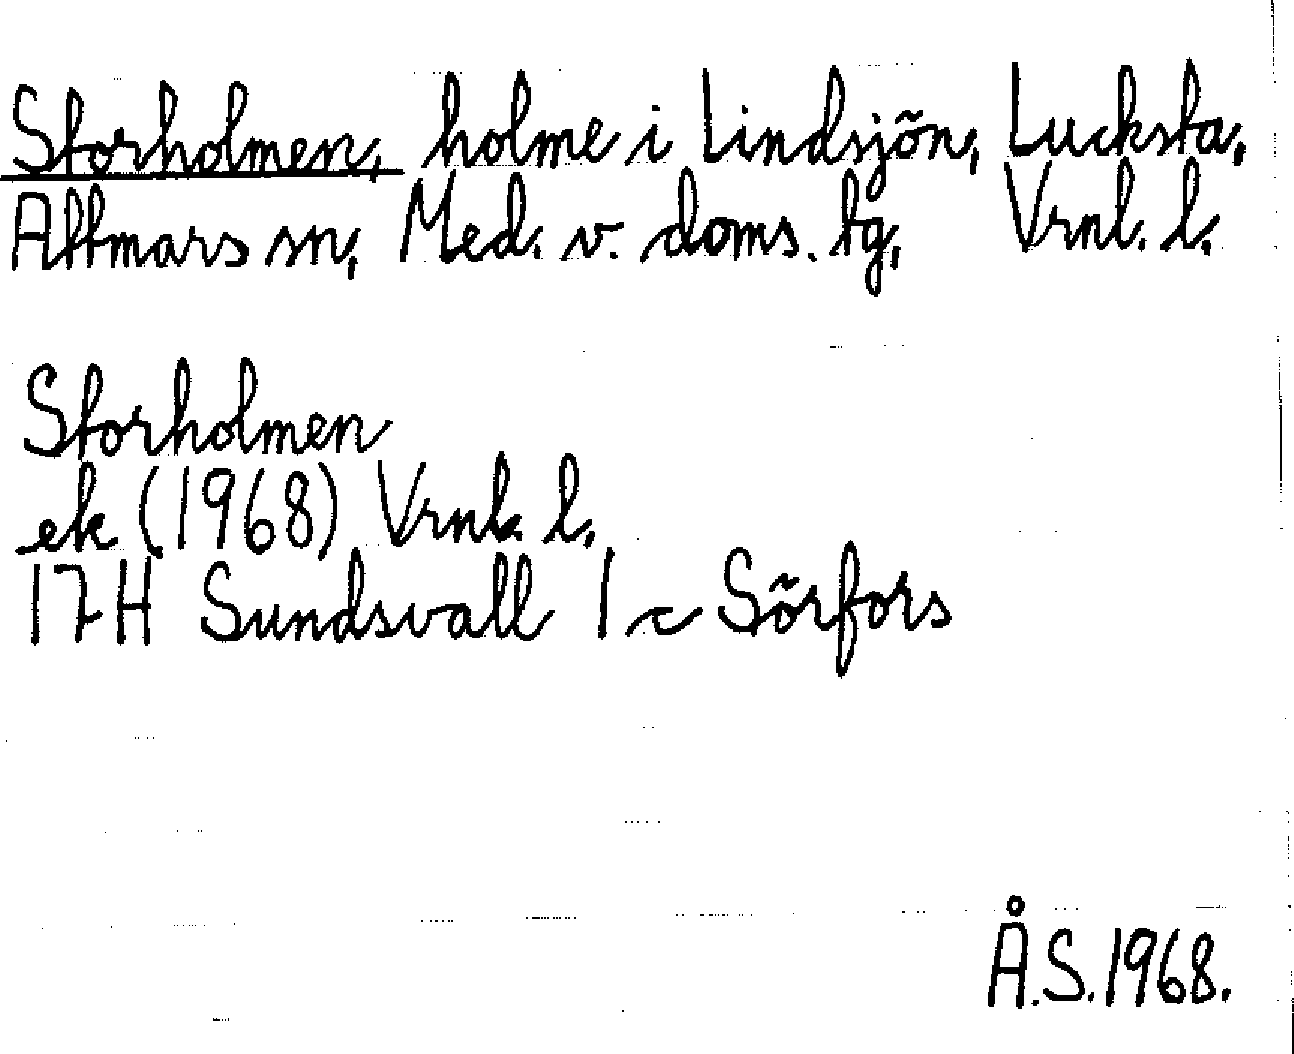 Storholmen, holme i Lindsjön, Lucksta,
Attmars sn, Med. v. doms. tg, Vrnl. l.
Storholmen
ek (1968) Vrnl. l.
17H Sundsvall 1 c Sörfors
Å.S.1968.